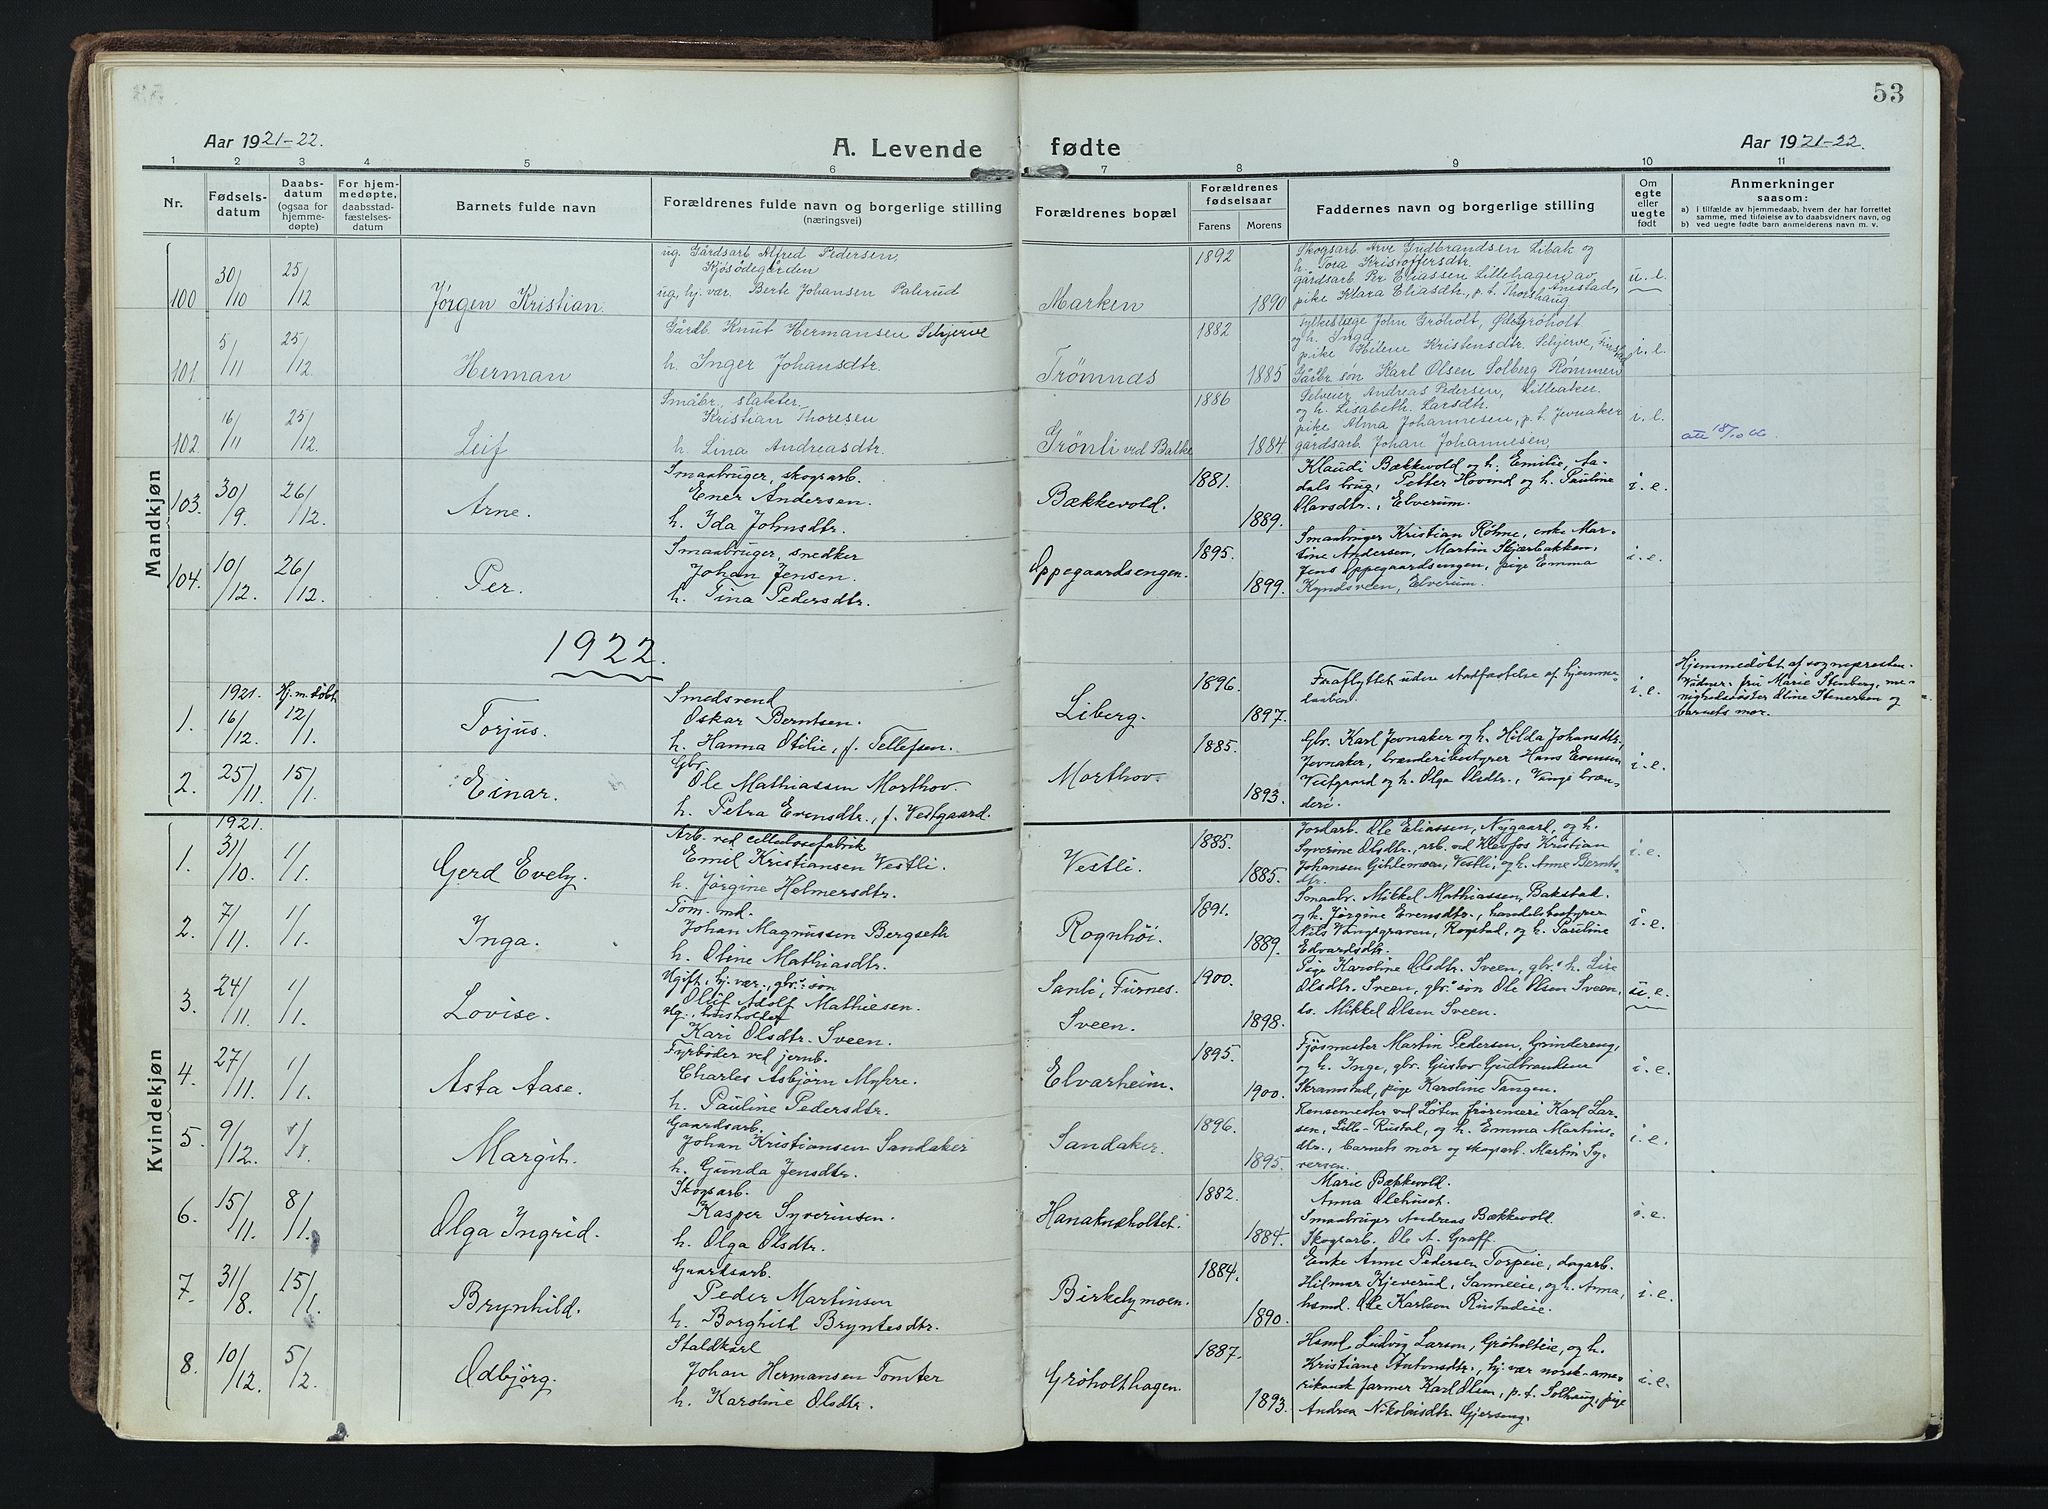 53
Aar 1921-22.
A. Levende fødte
Aar 1921-22.
1 2 3 4 5 6 7 8 9 10 11
Nr.
Fødsels-
datum
Daabs-
datum
(ogsaa for
hjemme-
døpte)
For hjem-
medøpte,
daabsstad-
fæstelses-
datum
Barnets fulde navn
Forældrenes fulde navn og borgerlige stilling
(næringsvei)
Forældrenes bopæl
Forældrenes
fødselsaar
Farens Morens
Faddernes navn og borgerlige stilling
Om
egte
eller
uegte
født
Anmerkninger
saasom:
a) i tilfælde av hjemmedaab, hvem der har forrettet
samme, med tilføielse av to daabsvidners navn, og
b) ved uegte fødte barn anmelderens navn m. v.
Mandkjøn
100 30/10 25/12 Jørgen Kristian.
ug. Gårdsarb. Alfred Pedersen,
Kjosødegården
ug, hj. vær. Berte Johansen Palerud
Marken 1892 1890
Skogsarb. Arve Gudbrandsen Libak og
h. Tora Kristoffersdtr.
gårdsarb. Per Eliassen Lillehagen av Ånestad,
pike Klara Eliasdtr., p. t. Thorshaug
101 5/11 25/12 Herman
Gårdb. Knut Hermansen Schjerve
h. Inger Johansdtr.
Trømnæs 1882 1885
John Grøholt, Grøholt
og h. Inga
pike Helene Kristensdtr. Schjerve,
Gårbr. søn Karl Olsen Solberg Rømmen
102 16/11 25/12 Leif
Småbr., slakter
Kristian Thoresen
h. Lina Andreasdtr.
Grønli ved Balke 1886 1884
Andreas Pedersen, Lilleaker.
og h. Lisabeth Larsdtr.
pike Alma Johannesen, p. t. Jevnaker
gårdsarb. Johan Johannesen,
103. 30/9. 26/12. Arne.
Smaabruger, skogsarb.
Ener Andersen.
h. Ida Johnsdtr.
Bækkevold. 1881. 1889. i. e.
Klaudi Bækkevold og h. Emilie, Aa-
dals brug, Petter Hovind og h. Pauline
Olavsdtr., Elverum.
104. 10/12. 26/12. Per.
Smaabruger, snedker
Johan Jensen.
h. Tina Pedersdtr.
Oppegaardsengen. 1895. 1899. i. e.
Smaabruger Kristian Røhne, enke Mar-
tine Andersen, Martin Skjærbakken,
Jens Oppegaardsengen, pige Emma
Kyndsveen, Elverum.
1922.
1. 1921. 16/12. Hj.m.døbt 12/1. Torjus.
Smedsvend
Oskar Berntsen.
h. Hanna Otilie, f. Tellefsen.
Liberg. 1896. 1897. i. e.
Fraflyttet uden stadfæstelse af hjemme-
daaben.
Hjemmedøbt af sognepresten.
Vidner: fru Marie Stenberg, me-
nighedssøster Oline Stenersen og
barnets mor.
2. 25/11. 15/1. Einar.
Gbr.
Ole Mathiassen Morthov.
h. Petra Evensdtr., f. Vestgaard.
Morthov. 1885. 1893. i. e.
Gbr. Karl Jevnaker og h. Hilda Johansdtr.,
Jevnaker, brænderibestyrer Hans Evensen
Vestgaard og h. Olga Olsdtr., Vangs bræn-
deri.
Kvindekjøn
1. 1921. 31/10. 1/1. Gerd Evely.
Arb. ved cellulosefabrik
Emil Kristiansen Vestli.
h. Jørgine Helmersdtr.
Vestli. 1885. 1885. i. e.
Jordarb. Ole Eliassen, Nygaard, og h.
Syverine Olsdtr., arb. ved Klevfos Kristian
Johansen Gihlemoen, Vestli, og h. Anne Bernts-
dtr.
2. 7/11. 1/1. Inga.
Tom. md.
Johan Magnussen Bergseth
h. Oline Mathiasdtr.
Rognhøi. 1891. 1889. i. e.
Smaabr. Mikkel Mathiassen, Bakstad
og h. Jørgine Evensdtr., handelsbestyrer
Nils Vangsgraven, Rogstad, og h. Pauline
Edvardsdtr.
3. 24/11. 1/1. Lovise.
Ugift, hj. vær., gbr.' søn
Oluf Adolf Mathiesen.
Ug., husholder
Kari Olsdtr. Sveen.
Sanli, Furnes.
Sveen. 1900. 1898. u. e.
Pige Karoline Olsdtr. Sveen, gbr.' h. Lise
Olsdtr. Sveen, gbr.' søn Ole Olsen Sveen,
do. Mikkel Olsen Sveen.
4. 27/11. 1/1. Asta Aase.
Fyrbøder ved jernb.
Charles Asbjørn Myhre.
h. Pauline Pedersdtr.
Elvarheim. 1895. 1900. i. e.
Fjøsmester Martin Pedersen, Grindereng,
og h. Inge, gbr. Gustav Gudbrandsen
Skramstad, pige Karoline Tangen.
5. 9/12. Margit.
Gaardsarb.
Johan Kristiansen Sandaker
h. Gunda Jensdtr.
Sandaker. 1896. 1895. i. e.
Rensemester ved Løten Karl Lar-
sen, Lille-Rustad, og h. Emma Martins-
dtr., barnets mor og skogsarb. Martin Sy-
versen.
6. 15/11. 8/1. Olga Ingrid.
Skogsarb.
Kasper Syverinsen.
h. Olga Olsdtr.
Hanaknæholtet. 1882. 1884. i. e.
Marie Bækkevold.
Anna Olehuset.
Smaabruger Andreas Bækkevold
Skogsarb. Ole A. Graff.
7. 31/8. 15/1. Brynhild.
Gaardsarb.
Peder Martinsen
h. Borghild Bryntesdtr.
Birkelymoen. 1884. 1890. i. e.
Enke Anne Pedersen Torpeie, dagarb.
Hilmar Kjeverud, Sanneeie, og h. Anna,
hsmd. Ole Karlsen Rustadeie.
8. 10/12. 5/2. Odbjørg.
Staldkarl
Johan Hermansen Tomter
h. Karoline Olsdtr.
Grøholthagen. 1887. 1893. i. e.
Hsmd. Ludvig Larsen, Grøholteie, og h.
Kristiane Antonsdtr., hj. vær norsk-ame-
rikansk farmer Karl Olsen, p. t. Solhaug, pige
Andrea Nikolaisdtr. Gjerseng.